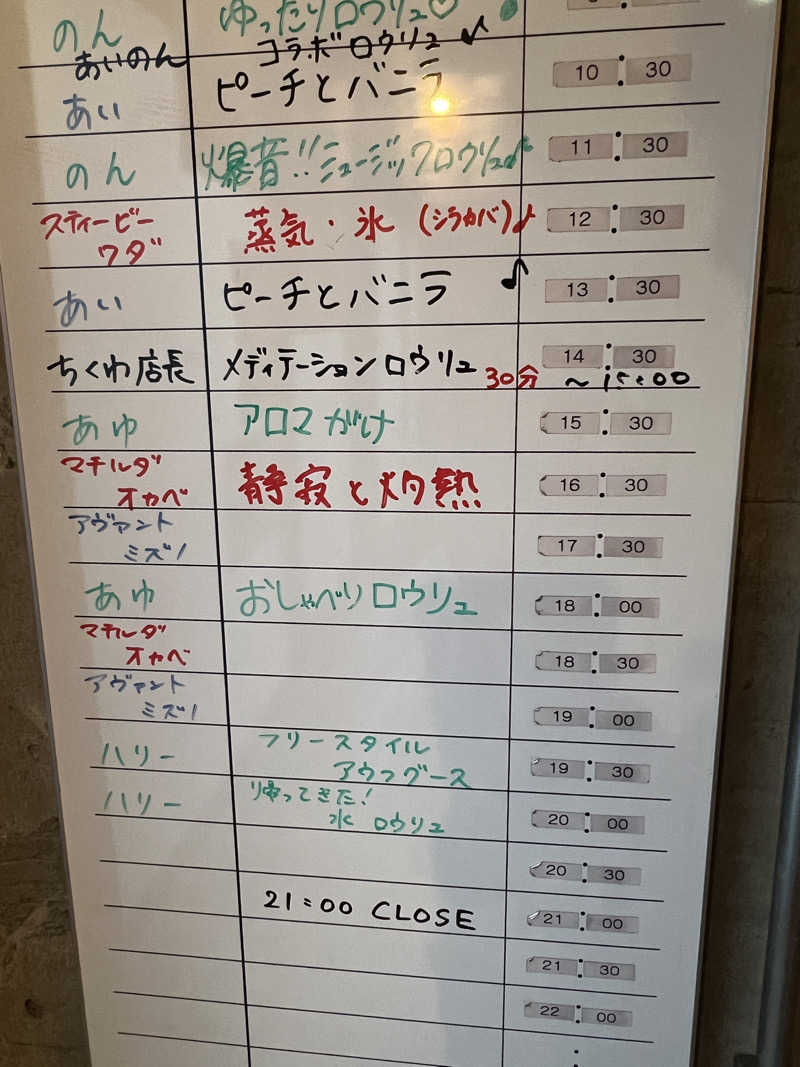 のん ゆったりロウリュ♡
あいのん コラボロウリュ♪
あい ピーチとバニラ 10:30
のん 爆音!!ミュージックロウリュ♪ 11:30
スティービー
ワダ 蒸気・氷(シラカバ)♪ 12:30
あい ピーチとバニラ ♪ 13:30
ちくわ店長 メディテーションロウリュ 30分 14:30
〜15:00
あゆ アロマがけ 15:30
マチルダ
オカベ 静寂と灼熱 16:30
アヴァント
ミズノ 17:30
あゆ おしゃべりロウリュ 18:00
マチルダ
オカベ 18:30
アヴァント
ミズノ 19:00
ハリー フリースタイル
アウフグース 19:30
ハリー 帰ってきた!
氷 ロウリュ 20:00
20:30
21:00 CLOSE 21:00
21:30
22:00